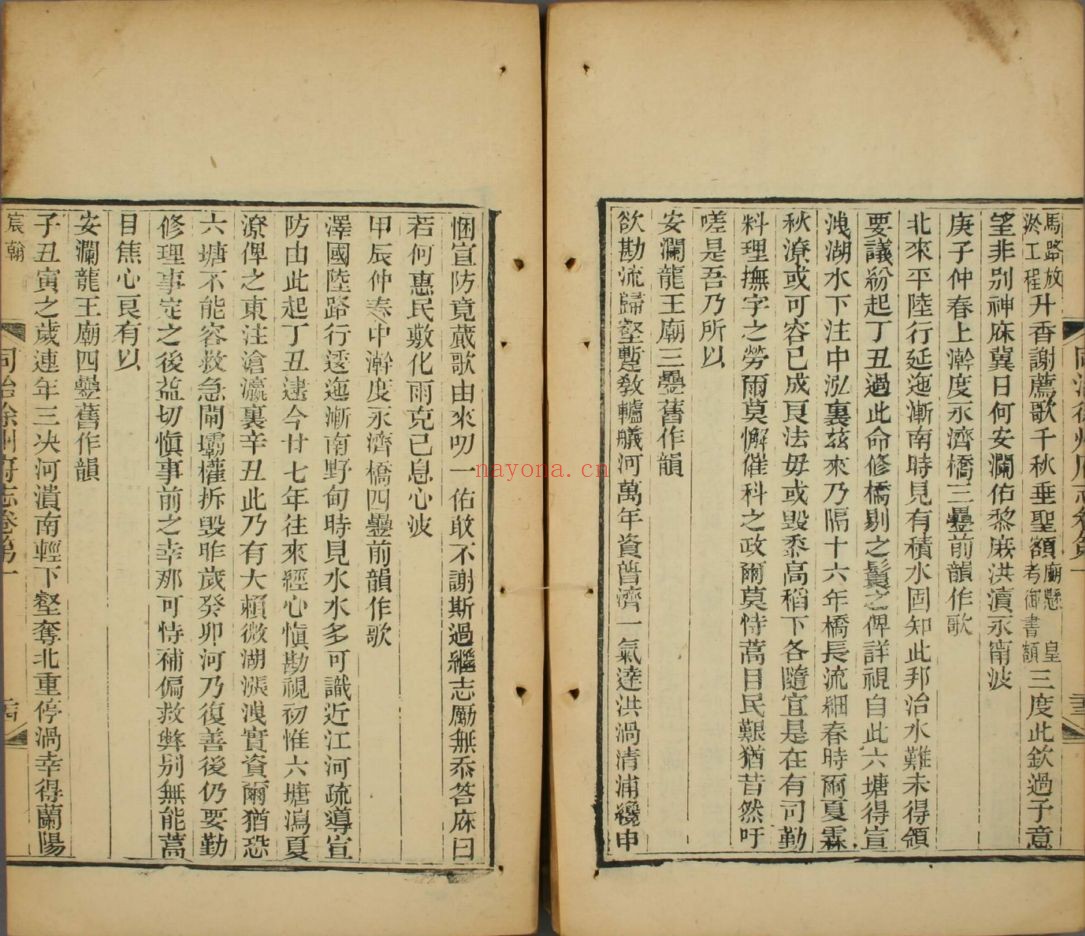 馬路放淤工程升香謝薦歌千秋垂聖額廟懸皇考御書額三度此欽過予意
望非别神庥冀日何安瀾佑黎庶洪瀆永甯波
庚子仲春上澣度永濟橋三疊前韻作歌
北來平陸行延迤漸南時見有積水固知此邦治水難未得領
要議紛起丁丑過此命修橋剔之鬒之俾詳視自此六塘得宣
洩湖水下注中泓裏兹來乃隔十六年橋長流細春時爾夏霖
秋潦或可容已成良法毋或毁黍高稻下各隨宜是在有司勤
料理撫字之勞爾莫懈催科之政爾莫恃蒿目民艱猶昔然吁
嗟是吾乃所以
安瀾龍王廟三疊舊作韻
欲勘流歸壑蹔教轤艤河萬年資普濟一氣達洪渦清浦纔申
悃宣防竟蕆歌由來叨一佑敢不謝斯過繼志勵無忝答庥曰
若何惠民敷化雨克己息心波
甲辰仲春中澣度永濟橋四疊前韻作歌
澤國陸路行逶迤漸南野甸時見水水多可識近江河疏導宣
防由此起丁丑逮今廿七年往來經心慎勘視初惟六塘瀉夏
潦俾之東注滄瀛裏辛丑此乃有大賴微湖漲洩實資爾猶恐
六塘不能容救急閘壩權拆毁昨歲癸卯河乃復善後仍要勤
修理事定之後益切慎事前之幸那可恃補偏救弊别無能蒿
目焦心良有以
安瀾龍王廟四疊舊作韻
子丑寅之歲連年三决河瀆南輕下壑奪北重停渦幸得蘭陽
宸翰
同治徐州府志卷第一
nayona.cn